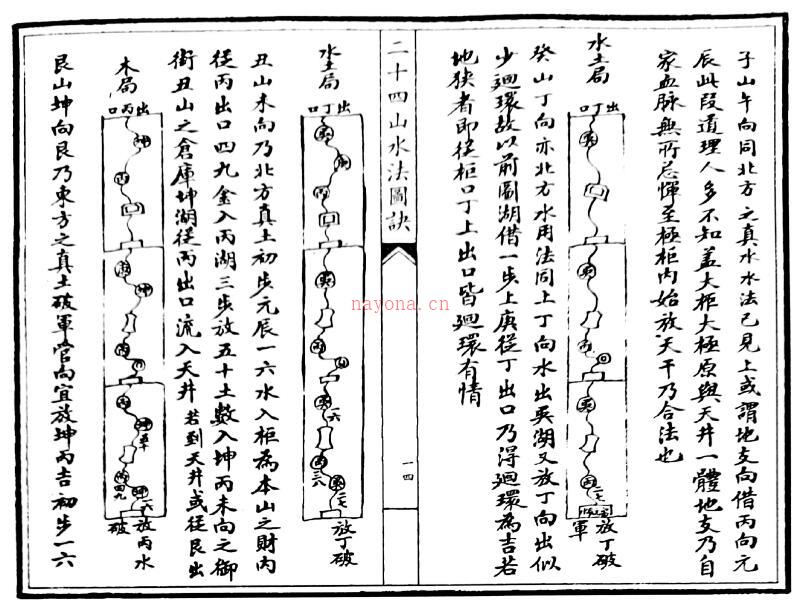 子山午向同北方之真水水法已見上或謂地支向借丙向元
辰此段道理人多不知盖大柜大極原與天井一體地支乃自
家血脉無所忌憚至極柜內始放天干乃合法也
水土局
出丁口
放丁破
軍
癸山丁向亦北方水用法同上丁向水出吳湖又放丁向出似
少廻環故以前圖湖借一步上庚從丁出口乃得廻環為吉若
地狹者即從柜口丁上出口皆廻環有情
二十四山水法圖訣
一四
水土局
出丁口
放丁破
丑山未向乃北方真土初步元辰一六水入柜為本山之財丙
從丙出口四九金入丙湖三步放五十土數入坤丙未向之御
街丑山之倉庫坤湖從丙出口流入天井 若到天井或從艮出
木局
出丙口
一六放丙水
破
艮山坤向艮乃東方之真土破軍官向宜放坤丙吉初步一六
nayona.cn